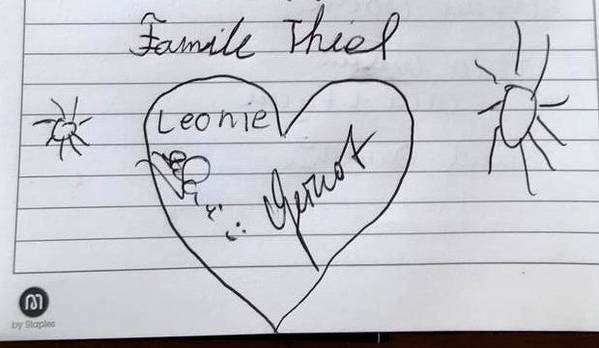 Familie Thiel
Leonie
Gernot
by Staples